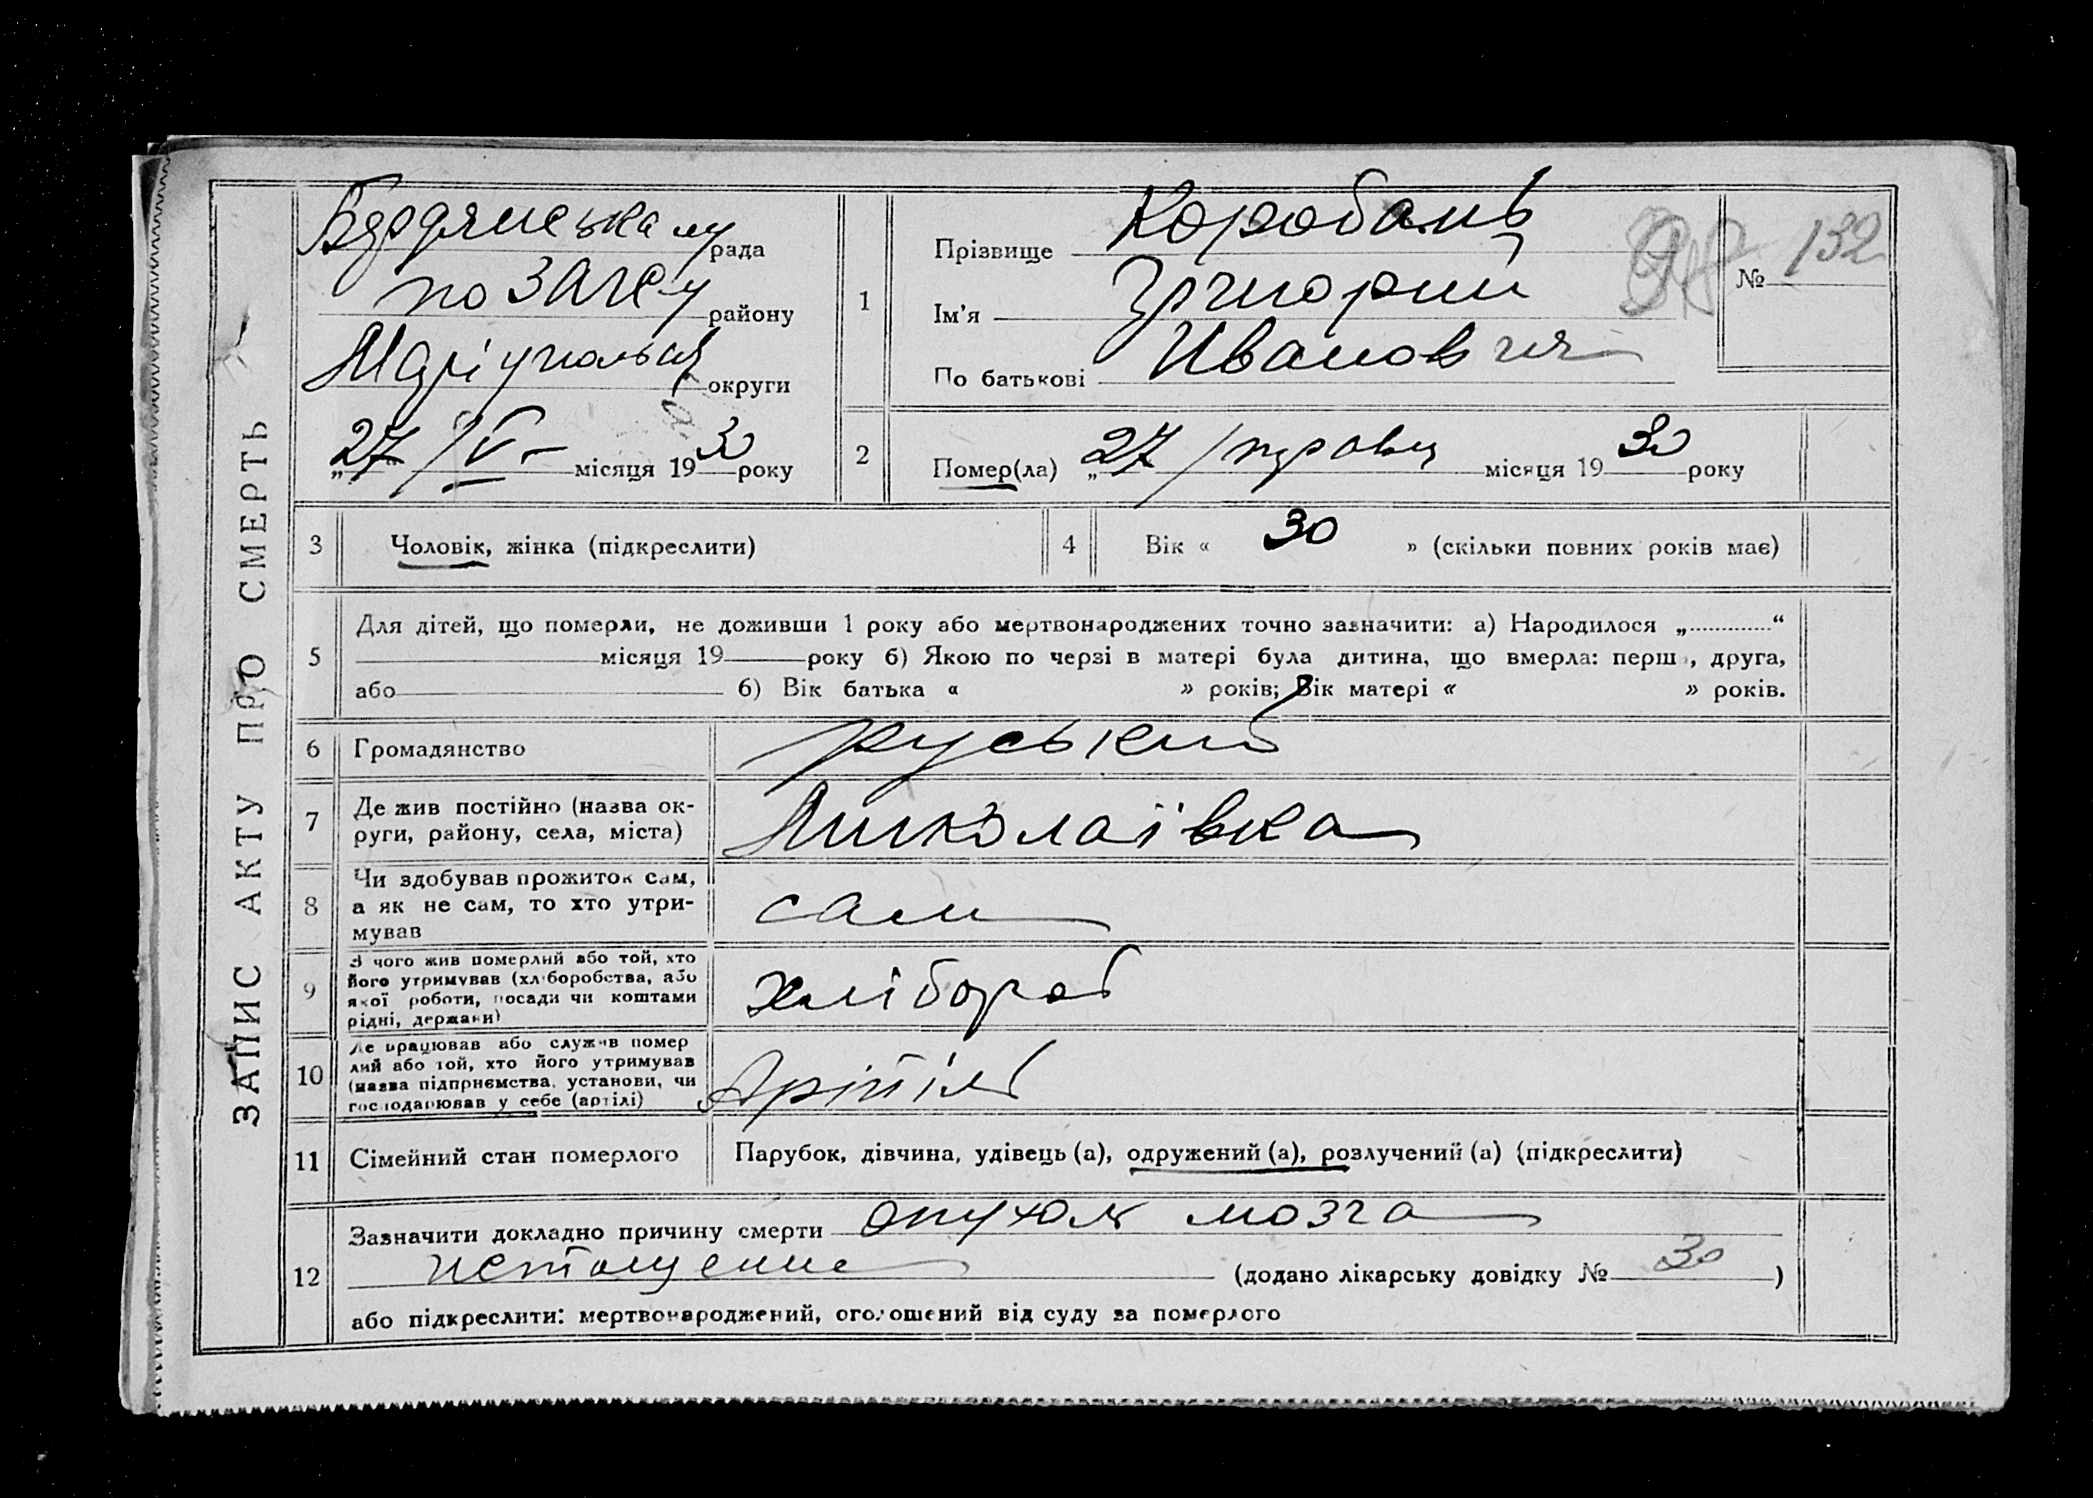 ЗАПИС АКТУ ПРО СМЕРТЬ
Бердянська рада
по ЗАГСу району
Маріупольськ округи
„27“ /V– місяця 1930 року
1
Прізвище Коробань
Ім'я Григорий
По батькові Иванович
№ 132
2
Помер(ла) „27 /травня місяця 1930 року
3 Чоловік, жінка (підкреслити)
4 Вік « 30 » (скільки повних років має)
5
Для дітей, що померли, не доживши 1 року або мертвонароджених точно зазначити: а) Народилося „............“
місяця 19 року б) Якою по черзі в матері була дитина, що вмерла: перш, друга,
або б) Вік батька « » років; Вік матері « » років.
6 Громадянство руський
7
Де жив постійно (назва ок-
руги, району, села, міста)
Николаївка
8
Чи здобував прожиток сам,
а як не сам, то хто утри-
мував
сам
9
З чого жив померлий або той, хто
його утримував (хліборобства, або
якої роботи, посади чи коштами
рідні, держави)
хлібороб
10
Де працював або служив помер
лий або той, хто його утримував
(назва підприємства, установи, чи
господарював у себе (артілі)
Артіль
11 Сімейний стан померлого Парубок, дівчина, удівець (а), одружений (а), розлучений (а) (підкреслити)
12
Зазначити докладно причину смерти опухоль мозга
истощение (додано лікарську довідку № 30)
або підкреслити: мертвонароджений, оголошений від суду за померлого